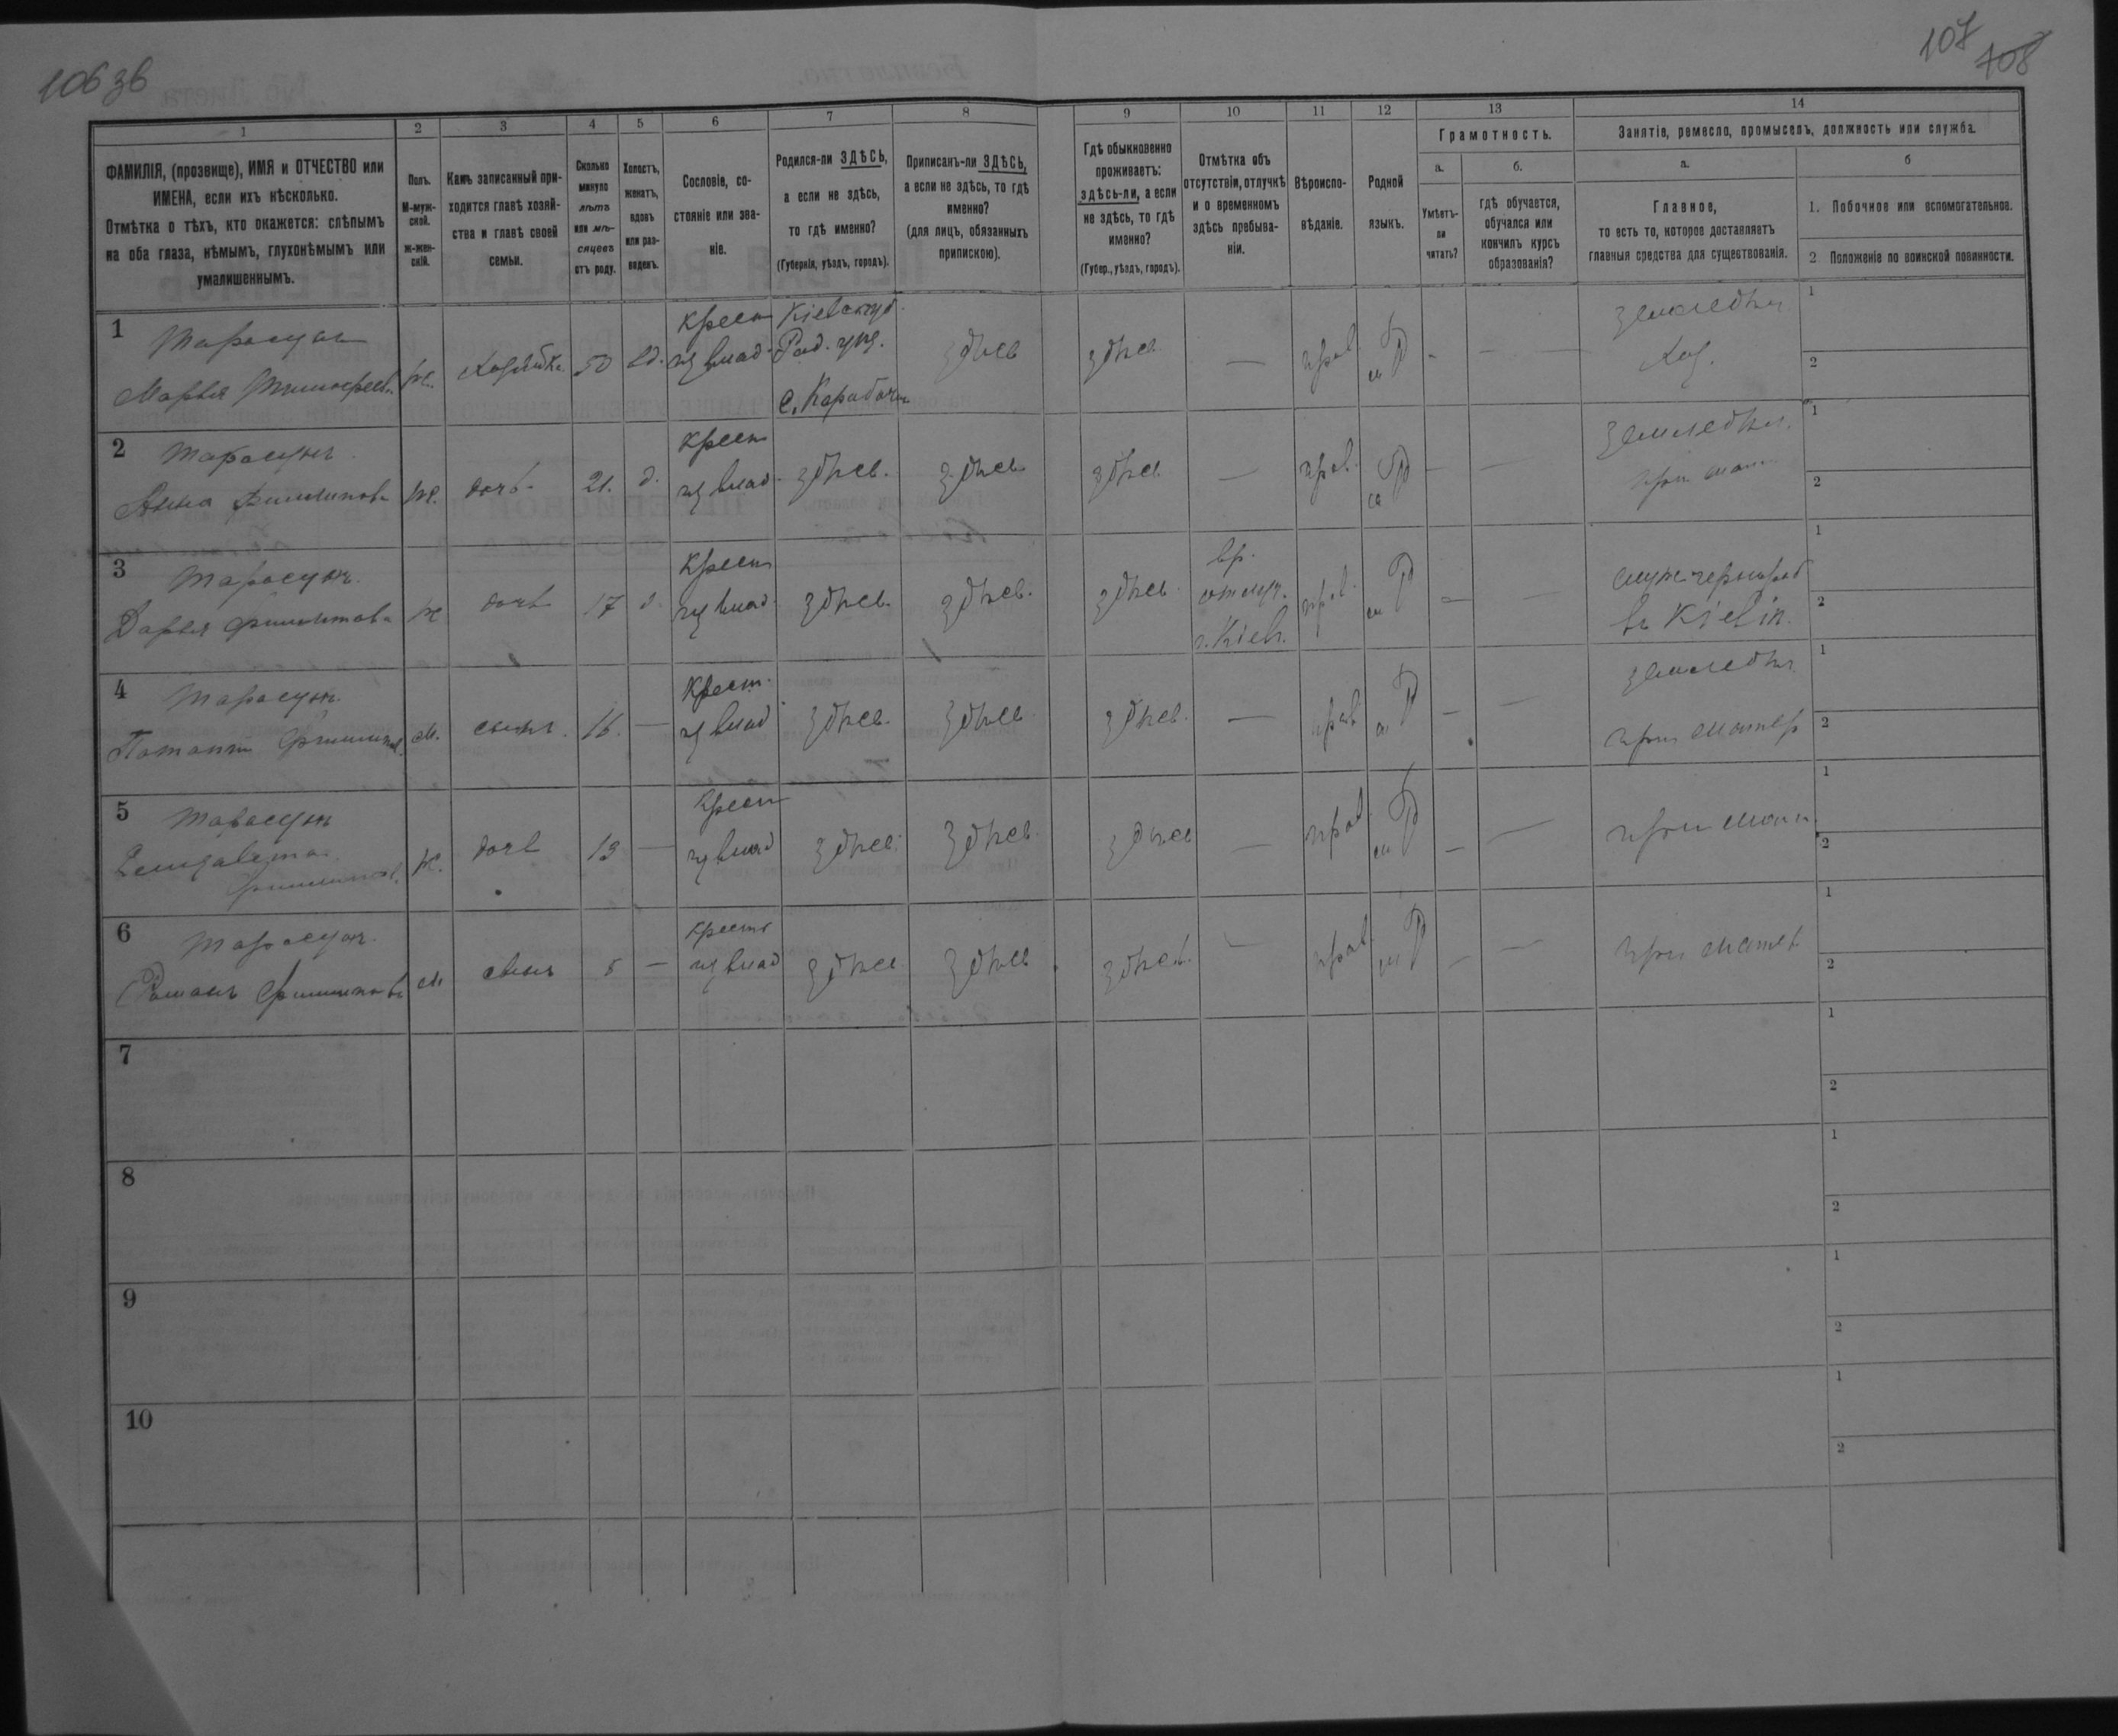 106 зв
107
108
1
2
3
4
5
6
7
8
9
10
11
12
13
14
ФАМИЛІЯ, (прозвище), ИМЯ и ОТЧЕСТВО или
ИМЕНА, если ихъ нѣсколько.
Отмѣтка о тѣхъ, кто окажется: слѣпымъ
на оба глаза, нѣмымъ, глухонѣмымъ или
умалишеннымъ.
Полъ.
М-муж-
ской.
ж-жен-
скій.
Какъ записанный при-
ходится главѣ хозяй-
ства и главѣ своей
семьи.
Сколько
минуло
лѣтъ
или мѣ-
сяцевъ
отъ роду.
Холостъ,
женатъ,
вдовъ
или раз-
веденъ.
Сословіе, со-
стояніе или зва-
ніе.
Родился-ли ЗДѢСЬ,
а если не здѣсь,
то гдѣ именно?
(Губернія, уѣздъ, городъ).
Приписанъ-ли ЗДѢСЬ,
а если не здѣсь, то гдѣ
именно?
(для лицъ, обязанныхъ
припискою).
Гдѣ обыкновенно
проживаетъ:
здѣсь-ли, а если
не здѣсь, то гдѣ
именно?
(Губер., уѣздъ, городъ).
Отмѣтка объ
отсутствіи, отлучкѣ
и о временномъ
здѣсь пребыва-
ніи.
Вѣроиспо-
вѣданіе.
Родной
языкъ.
Грамотность.
а.
Умѣетъ-
ли
читать?
б.
гдѣ обучается,
обучался или
кончилъ курсъ
образованія?
Занятіе, ремесло, промыселъ, должность или служба.
а.
Главное,
то есть то, которое доставляетъ
главныя средства для существованія.
б
1. Побочное или вспомогательное.
2 Положеніе по воинской повинности.
1
Марья
ж.
хозяйка
50
вд.
крест
из влад.
Кіев. губ.
Рад. уѣз.
с.
здѣсь
здѣсь
—
прав.
-
—
земледѣл.
хоз.
1
2
2
Анна Филипова
ж.
дочь
21.
д.
крест
из влад.
здѣсь.
здѣсь
здѣсь
—
прав.
—
—
земледѣл.
при мат
1
2
3
Дарья Филипова
ж
дочь
17
д.
крест
из влад.
здѣсь.
здѣсь.
здѣсь
вр.
отлуч.
г. Кіевъ.
прав.
—
—
въ Кіевѣ.
1
2
4
м.
сынъ.
16.
—
Крест.
из влад
здѣсь.
здѣсь
здѣсь.
—
прав
—
—
земледѣл
при матер
1
2
5
Елизавета
Филипов.
ж.
дочь
13
—
крест
из влад
здѣсь.
здѣсь
здѣсь
—
прав.
—
—
при мат
1
2
6
Романъ Филиповъ
м
сынъ
8
—
крест
из влад
здѣсь
здѣсь
здѣсь.
—
прав.
—
—
при матер
1
2
7
1
2
8
1
2
9
1
2
10
1
2